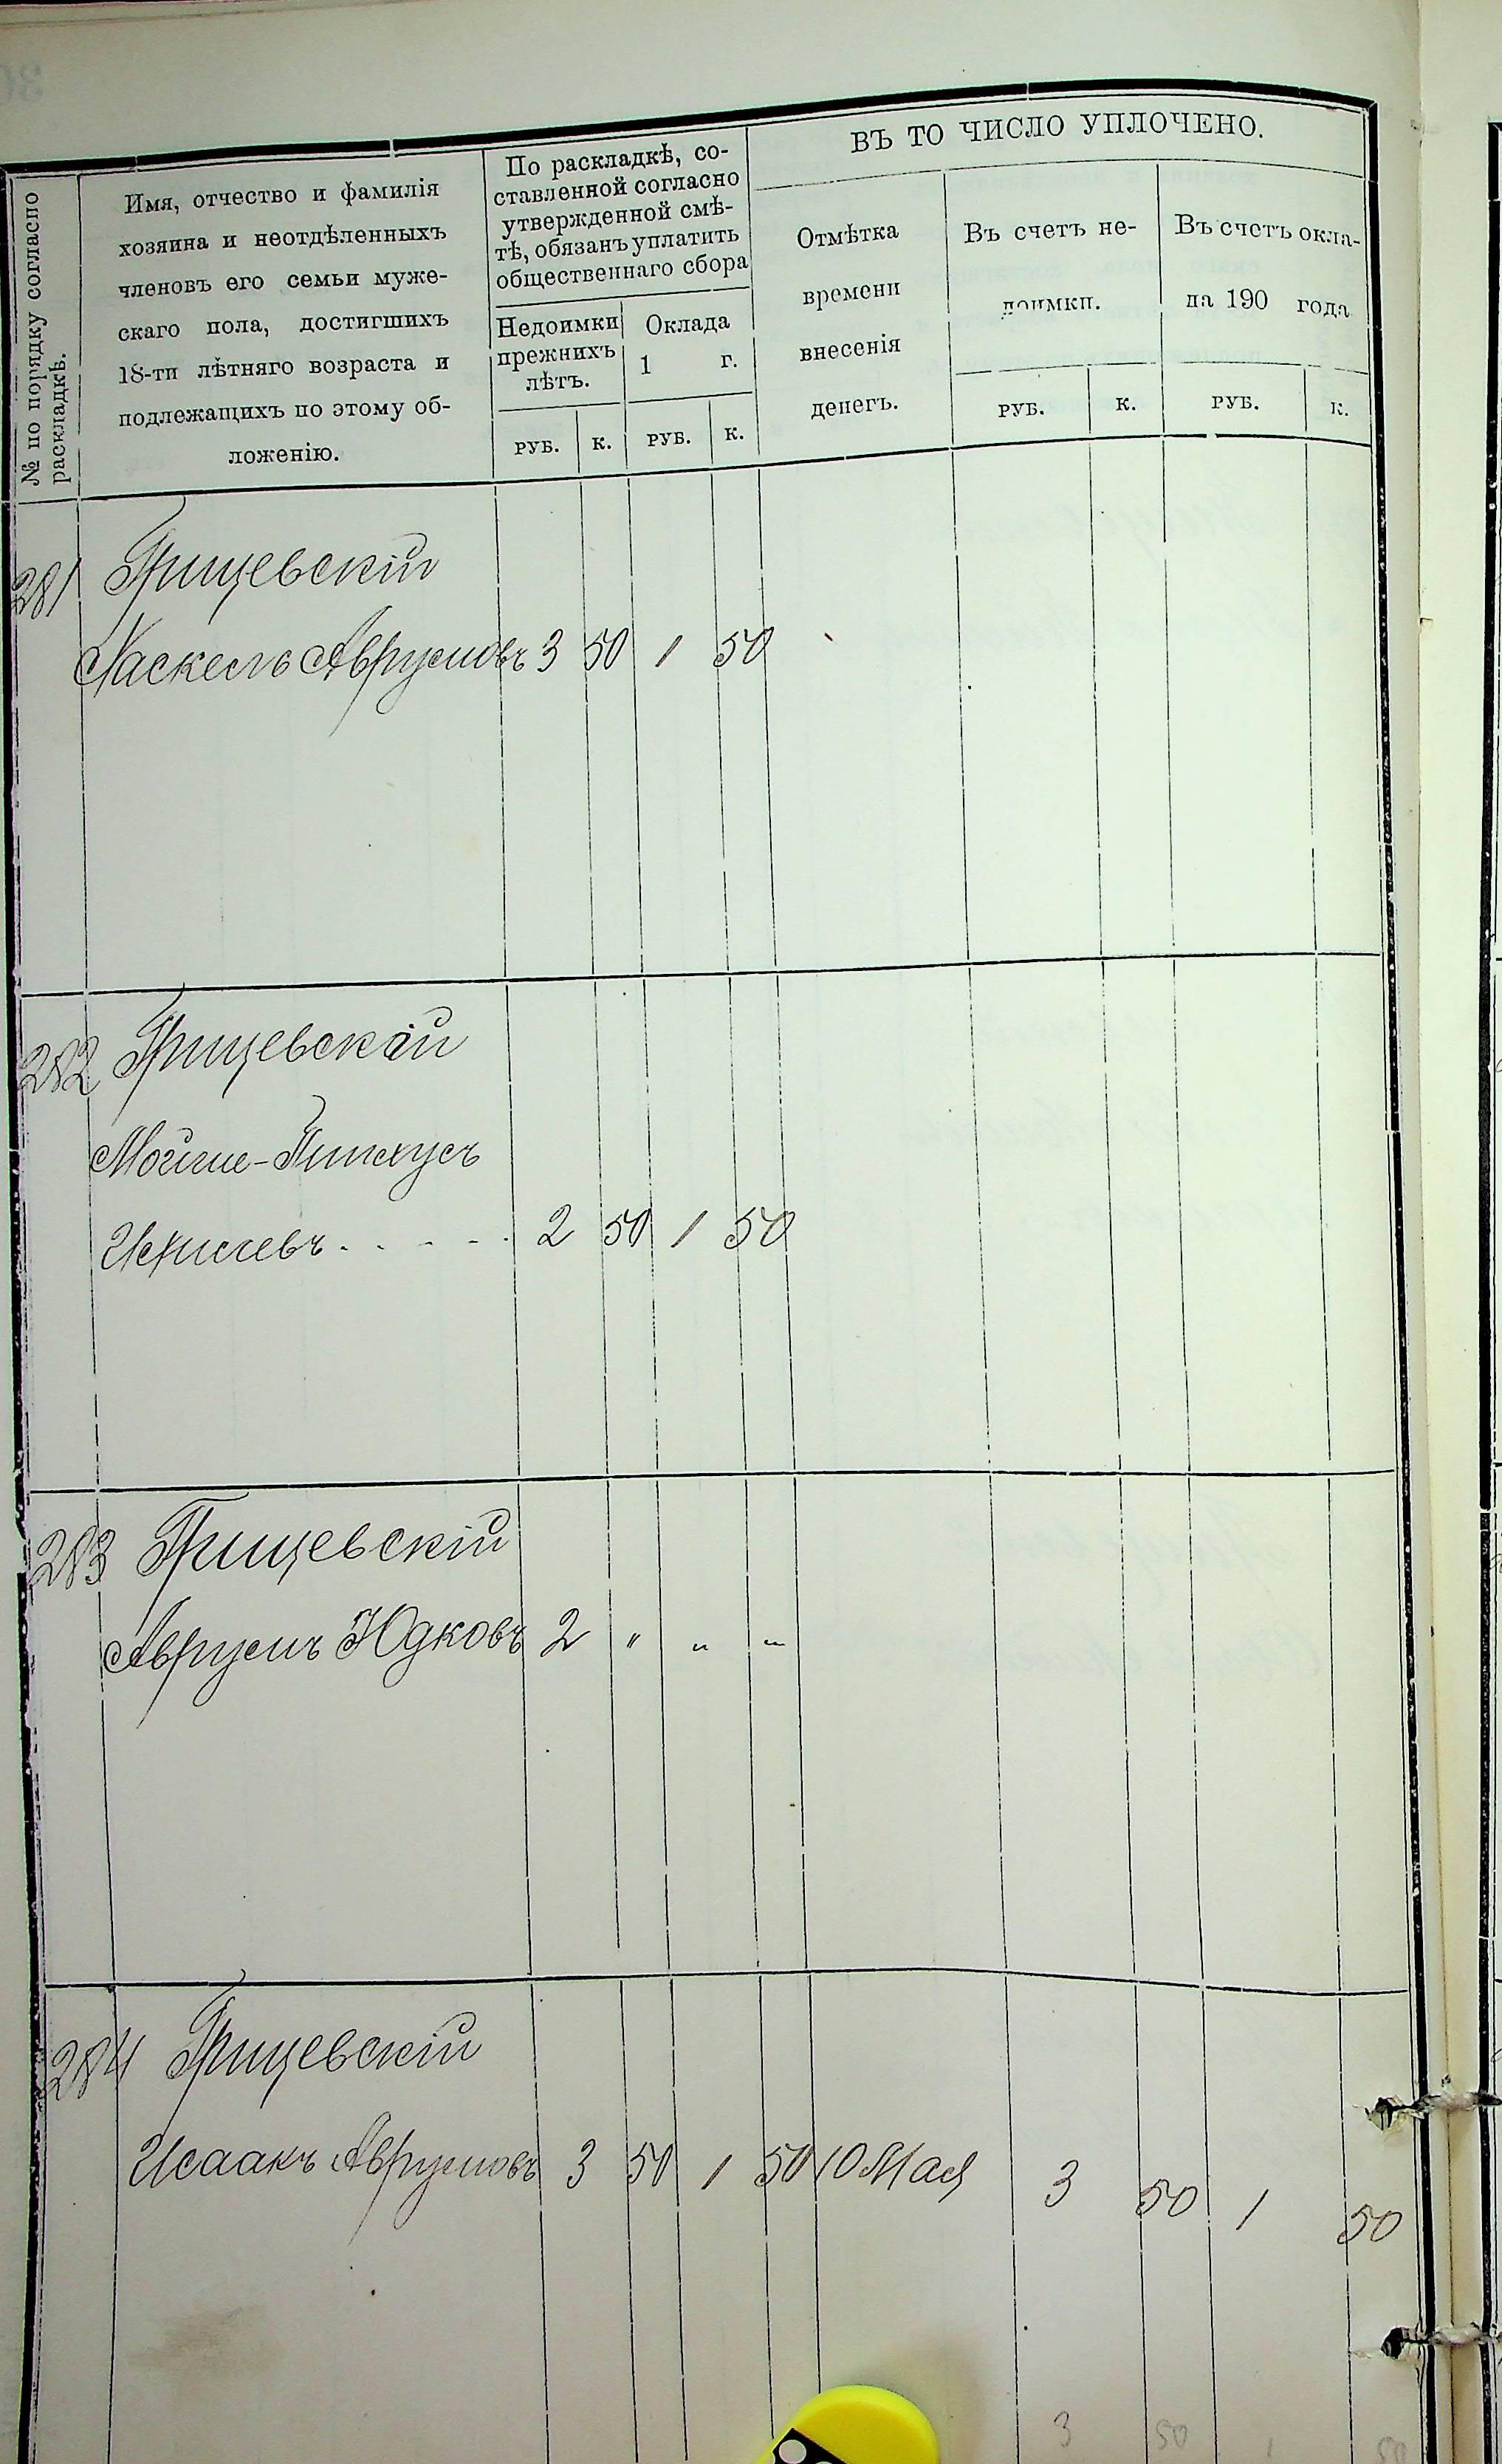 ВЪ ТО ЧИСЛО УПЛОЧЕНО.
№ по порядку согласно
раскладкѣ.
Имя, отчество и фамилія
хозяина и неотдѣленныхъ
членовъ его семьи муже-
скаго пола, достигшихъ
18-ти лѣтняго возраста и
подлежащихъ по этому об-
ложенію.
По раскладкѣ, со-
ставленной согласно
утвержденной смѣ-
тѣ, обязанъ уплатить
общественнаго сбора
Недоимки
прежнихъ
лѣтъ.
Оклада
1 г.
Отмѣтка
времени
внесенія
денегъ.
Въ счетъ не-
доимки.
Въ счетъ окла-
да 190 года
РУБ. К. РУБ. К. РУБ. К. РУБ. К.
281 Грищевскій
Хаскель Аврумовъ 3 50 1 50
282 Грищевскій
Мойше-Пинхусъ
Ихилевъ - - - - - 2 50 1 50
283 Грищевскій
Аврумъ Юдковъ 2 " " "
284 Грищевскій
Исаакъ Аврумовъ 3 50 1 50 10 Мая 3 50 1 50
3 50 1 50